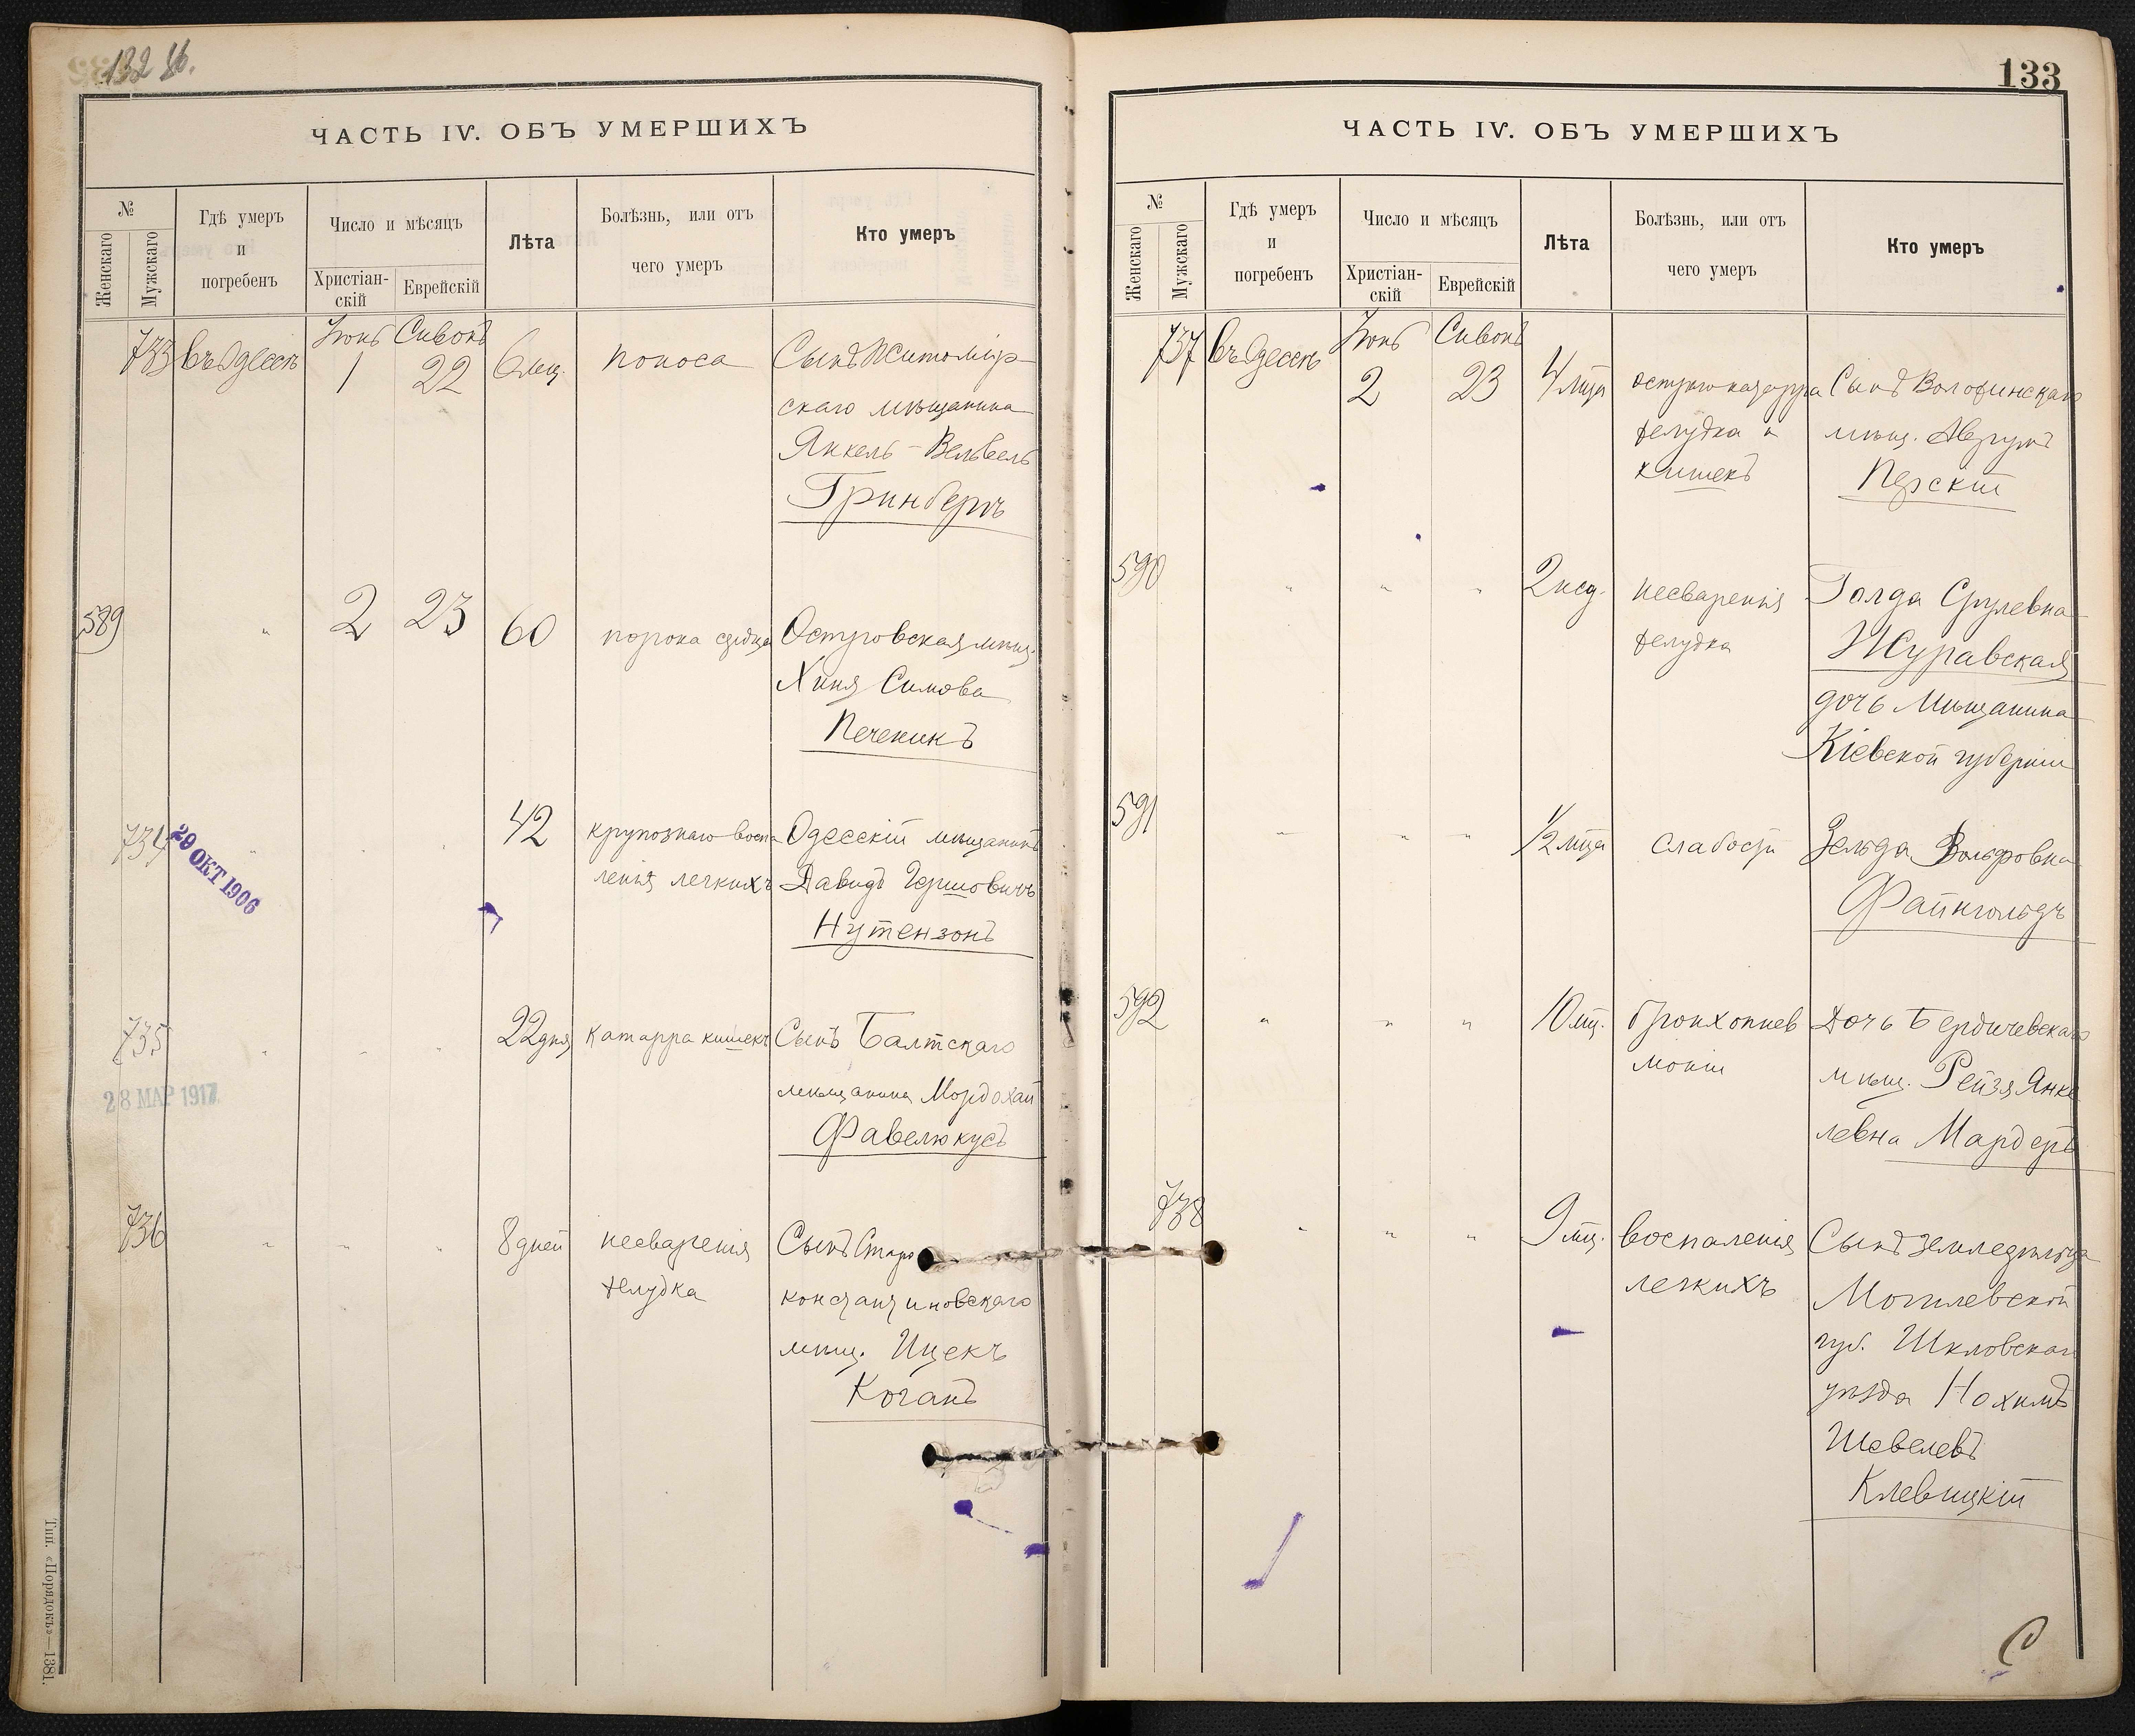 132 об.
ЧАСТЬ IV. ОБЪ УМЕРШИХЪ
№
Женскаго
Мужскаго
Гдѣ умеръ
и
погребенъ
Число и мѣсяцъ
Христіан-
скій
Еврейскій
Лѣта
Болѣзнь, или отъ
чего умеръ
Кто умеръ
Іюнь Сивонъ
733 въ Одессѣ 1 22 6 мец. поноса Сынъ Житомір
скаго мѣщанина
Янкель-Вельвель
Гринбергъ
589 " 2 23 60 порока сердца Островская мѣщ.
Хиня Симова
Печеникъ
734 " " " 42 крупознаго воспа Одесскій мѣщанинъ
ленія легкихъ Давидъ Гершовичъ
Нутензонъ
29 ОКТ 1906
735 " " " 22 дня катарра кишекъ Сынъ Балтскаго
мѣщанина Мордохай
Фавелюкусъ
28 МАР 1917
736 " " " 8 дней несваренія Сынъ Старо
желудка константиновскаго
мѣщ. Ицекъ
Коганъ
Тип. «Порядокъ»—1381.
133
ЧАСТЬ IV. ОБЪ УМЕРШИХЪ
№
Женскаго
Мужскаго
Гдѣ умеръ
и
погребенъ
Число и мѣсяцъ
Христіан-
скій
Еврейскій
Лѣта
Болѣзнь, или отъ
чего умеръ
Кто умеръ
Іюнь Сивонъ
737 въ Одессѣ 2 23 4 мца остраго катарра Сынъ Воложинскаго
желудка и мѣщ. Аврумъ
кишекъ Перскій
590 " " " 2 нед. несваренія Голда Срулевна
желудка Журавская
дочь мѣщанина
Кіевской губерніи
591 " " " 1/2 мца слабости Зельда Вольфовна
Файнгольдъ
592 " " " 10 мц. бронхопнев Дочь Бердичевскаго
моніи мѣщ. Рейзя Янке
левна Мардеръ
738 " " " 9 мц. воспаленія Сынъ земледѣльца
легкихъ Могилевской
губ. Шкловскаго
уѣзда Нохимъ
Шевелевъ
Клевицкій